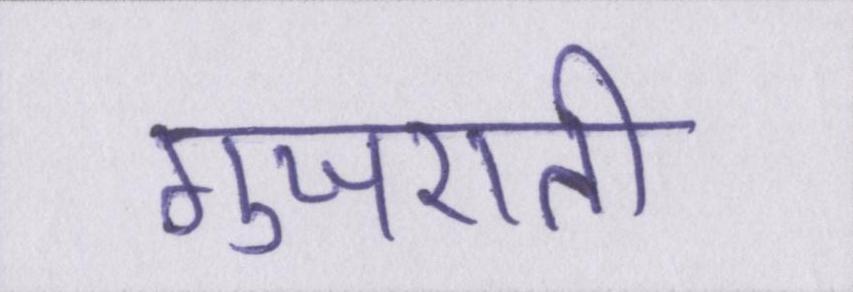 गुजराती